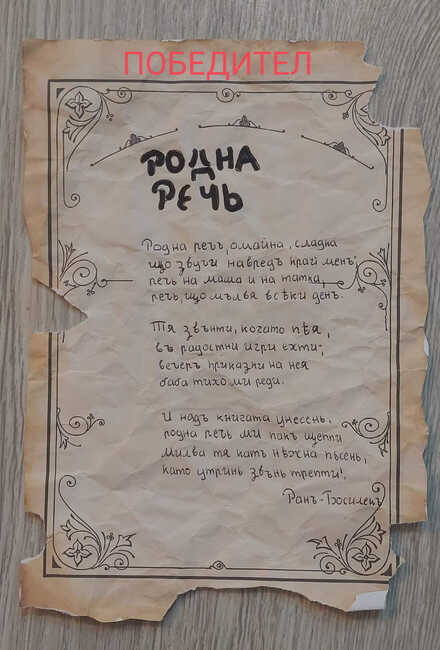 ПОБЕДИТЕЛ
РОДНА
РЕЧЬ
Родна речъ, омайна, сладка
що звучи навредъ край менъ,
речь на мама и на татка,
речь, що мълвя всѣки денъ.
Тя звънти, когато пѣя,
въ радостни игри ехти,
вечеръ приказни на нея
баба тихо ми реди.
И надъ книгата унесенъ,
родна речь ми пакъ шепти
милва тя катъ нѣжна пѣсень,
като утринь звънъ трепти!
Ранъ-Босилекъ